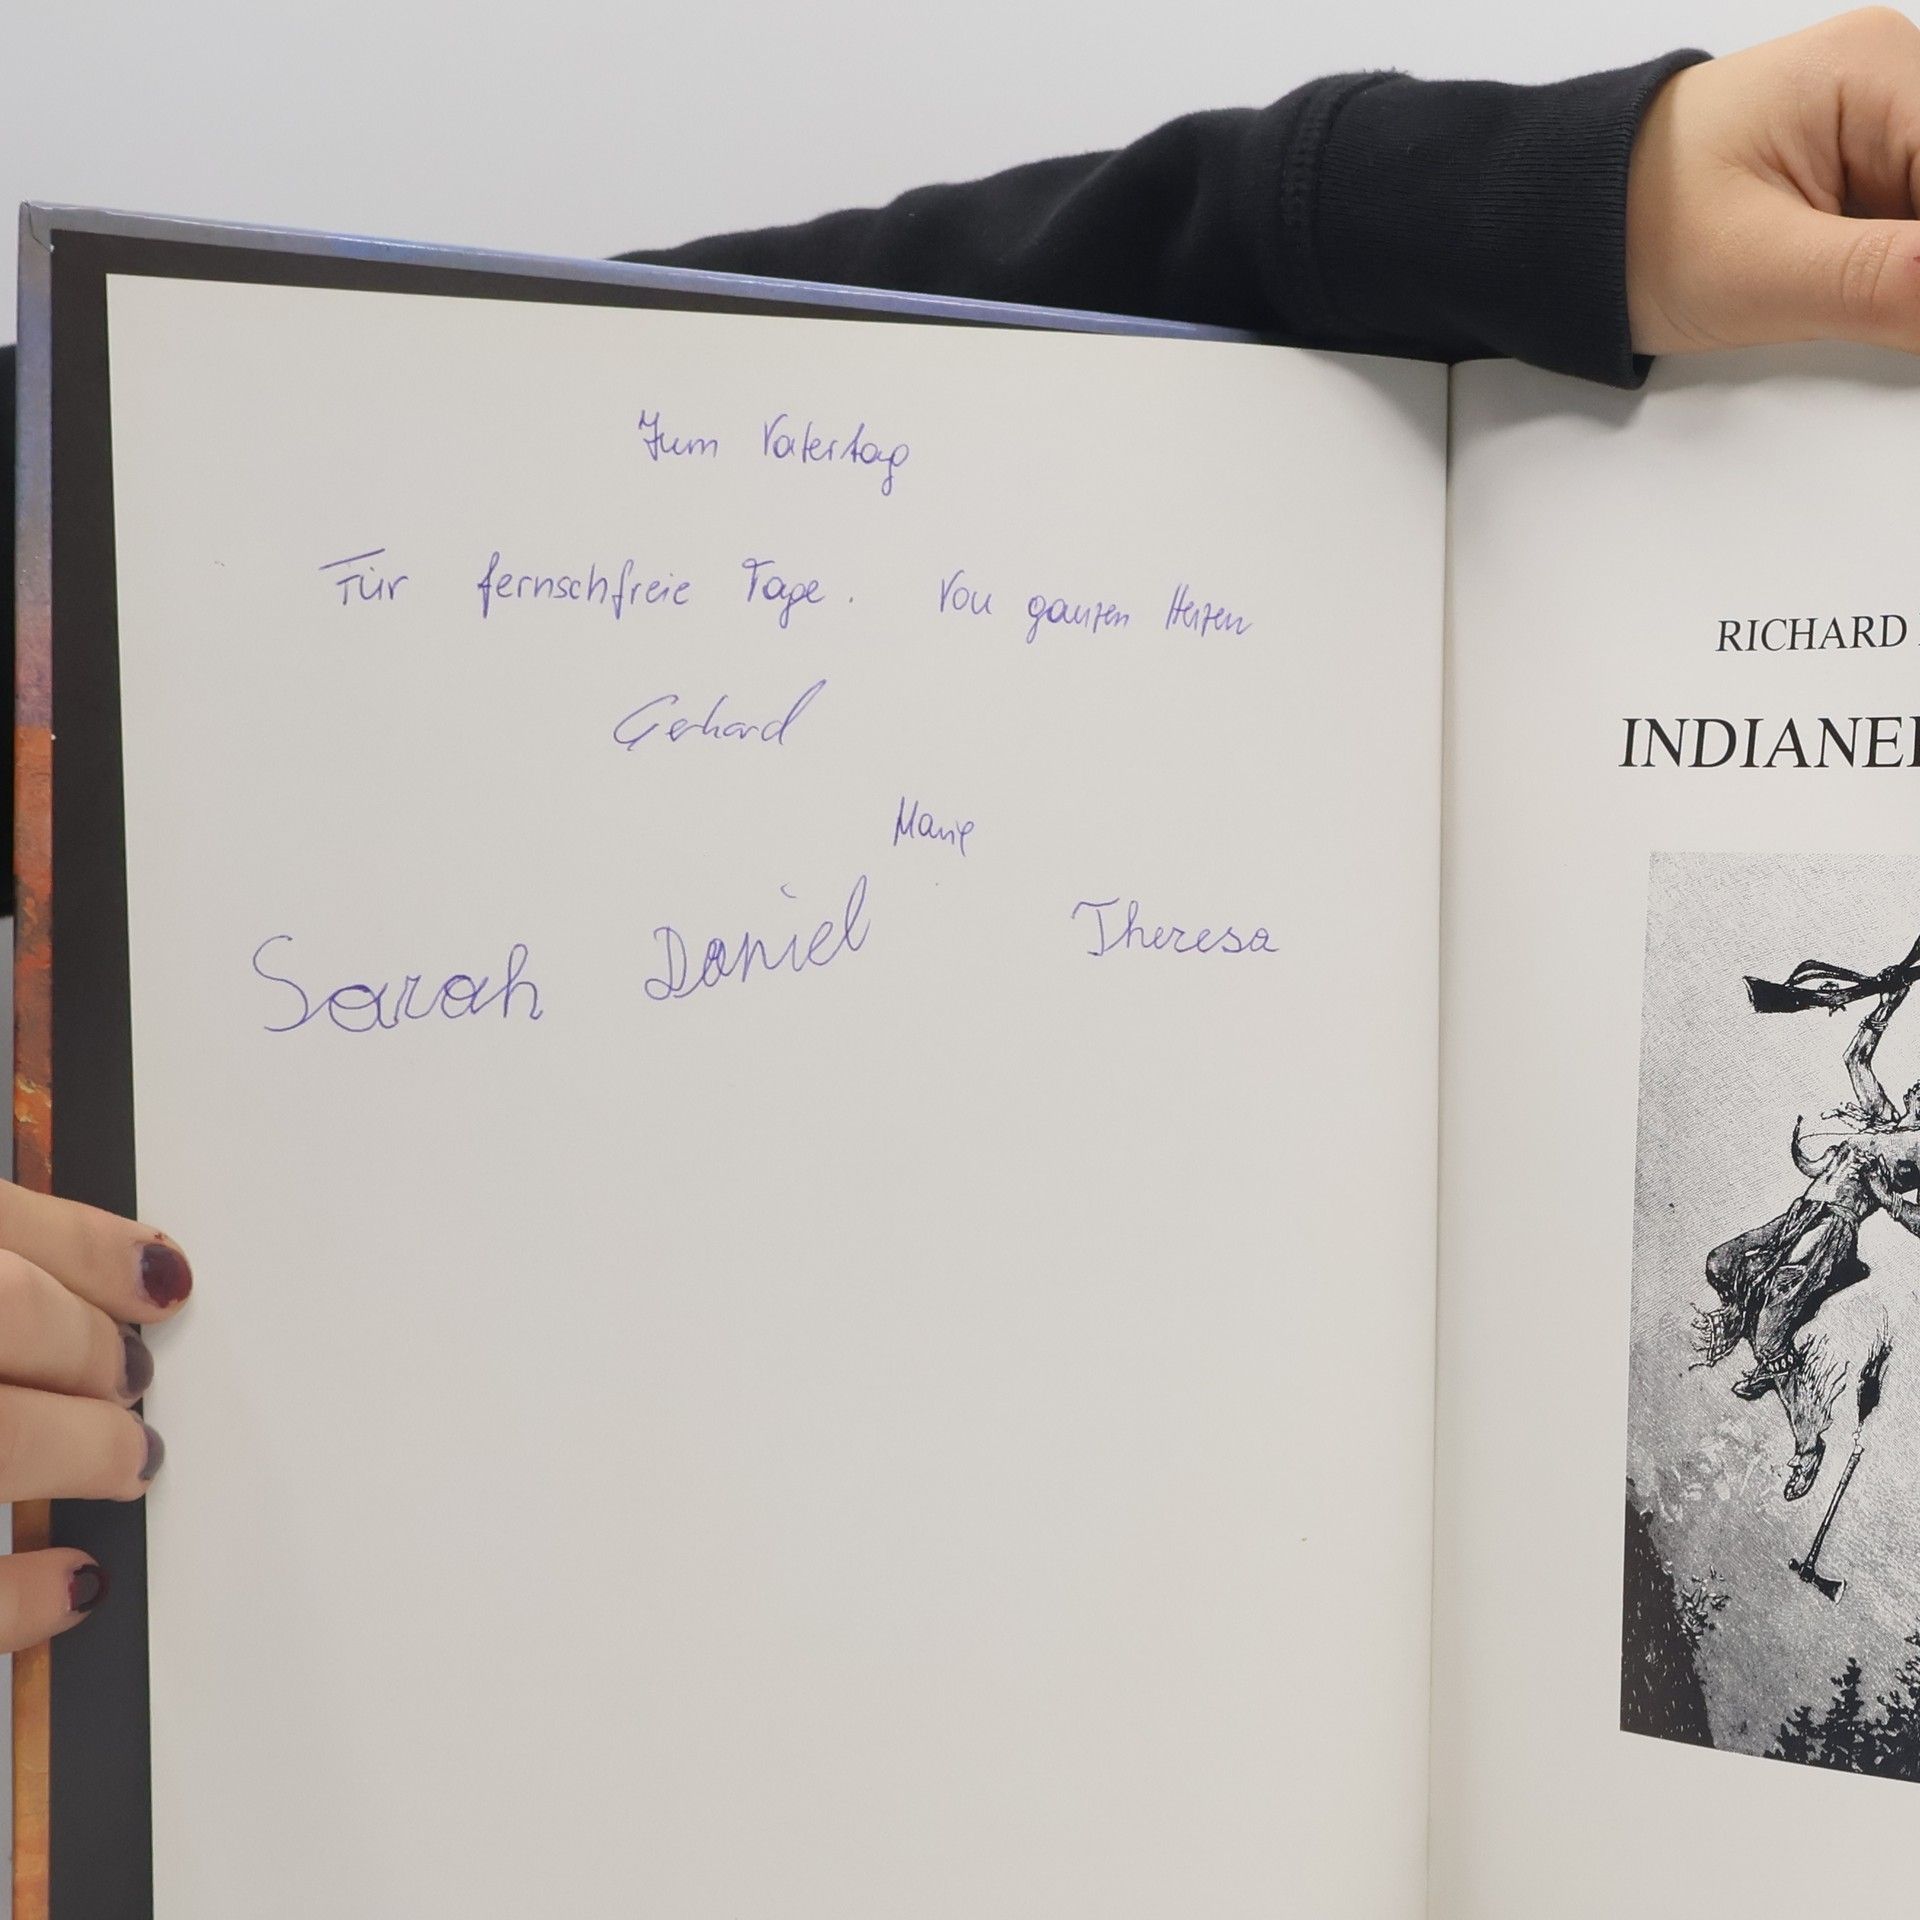 Zum Vatertag
Für fernschfreie Tage. Von ganzen Herzen
Gerhard
Marie
Sarah Daniel Theresa
RICHARD
INDIANE